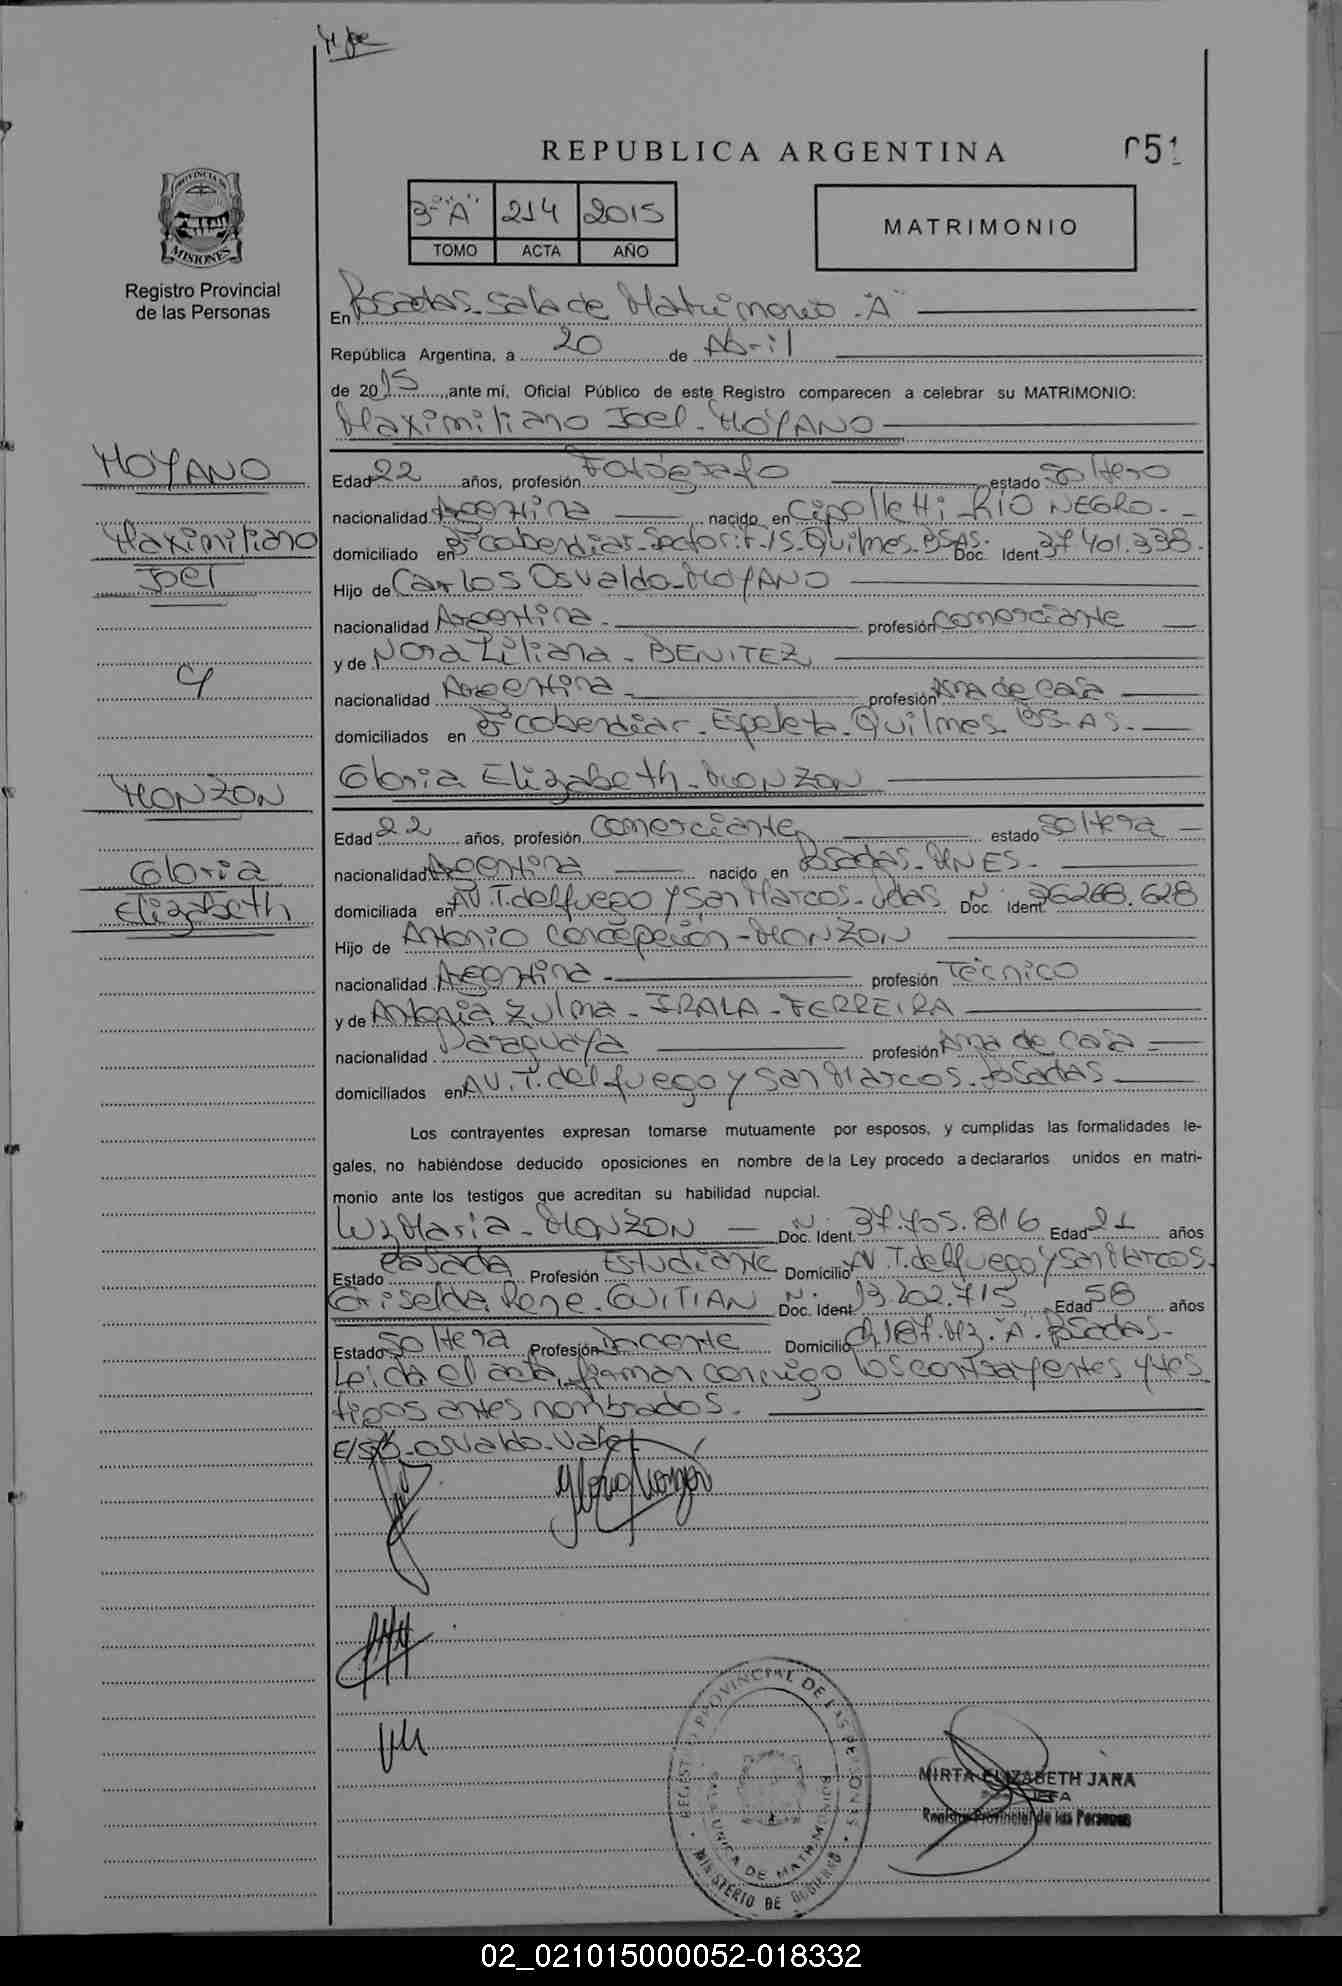 REPUBLICA ARGENTINA
051
PROVINCIA DE
MISIONES
Registro Provincial
de las Personas
3º "A" 214 2015
TOMO ACTA AÑO
MATRIMONIO
En Posadas - Sala de Matrimonio - "A"
República Argentina, a 20 de Abril
de 2015, ante mí, Oficial Público de este Registro comparecen a celebrar su MATRIMONIO:
Maximiliano Joel - MOYANO
MOYANO
Maximiliano
Joel
Edad 22 años, profesión Fotógrafo estado Soltero
nacionalidad Argentina nacido en Cipolletti - RIO NEGRO -
domiciliado en Sector: Quilmes - BS AS. Doc. Ident 37 401.338.
Hijo de Carlos Osvaldo - MOYANO
nacionalidad Argentina - profesión Comerciante
y de Nora Liliana - BENITEZ
nacionalidad Argentina - profesión Ama de casa
domiciliados en Espeleta - Quilmes BS - AS. -
y
Gloria Elizabeth - MONZON
MONZON
Gloria
Elizabeth
Edad 22 años, profesión Comerciante estado Soltera
nacionalidad Argentina nacido en Posadas - MNES -
domiciliada en AV. T. del fuego y San Marcos - Pdas Nº Doc. Ident 36268.628
Hijo de Antonio Concepción - MONZON
nacionalidad Argentina - profesión Técnico
y de Antonia Zulma - IRALA - FERREIRA
nacionalidad Paraguaya profesión Ama de casa -
domiciliados en AV. T. del fuego y San Marcos - Posadas
Los contrayentes expresan tomarse mutuamente por esposos, y cumplidas las formalidades le-
gales, no habiéndose deducido oposiciones en nombre de la Ley procedo a declararlos unidos en matri-
monio ante los testigos que acreditan su habilidad nupcial.
Luz Maria - MONZON Nº Doc. Ident. 37.705.816 Edad 21 años
Estado Casada Profesión Estudiante Domicilio AV T. del fuego y San Marcos.
Griselda Rene - GUITIAN Nº Doc. Ident 13.202.715 Edad 58 años
Estado Soltera Profesión Docente Domicilio Ch 187. Mz. "A" - Posadas -
Leída el acta, firman conmigo los contrayentes y tes
tigos antes nombrados.
E/S/B - Osvaldo - Vale
Gloria Monzon
REGISTRO PROVINCIAL DE LAS PERSONAS
UNICA DE MATRIMONIOS
MINISTERIO DE GOBIERNO
MIRTA ELIZABETH JARA
JEFA
Registro Provincial de las Personas
02_021015000052-018332